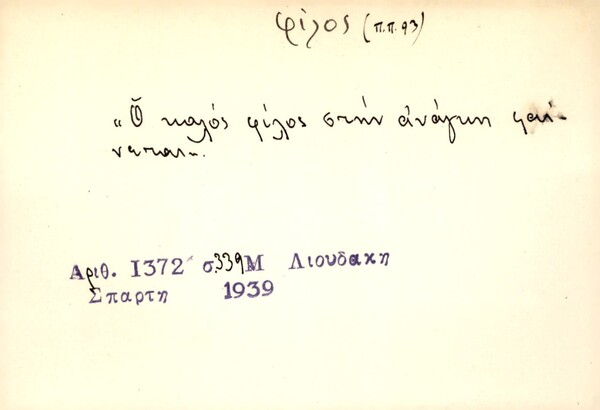 φίλος (π.π. 93)
«Ὁ καλός φίλος στήν ἀνάγκη φαί-
νεται».
Αριθ. 1372 σ. 339 Μ Λιουδακη
Σπαρτη 1939